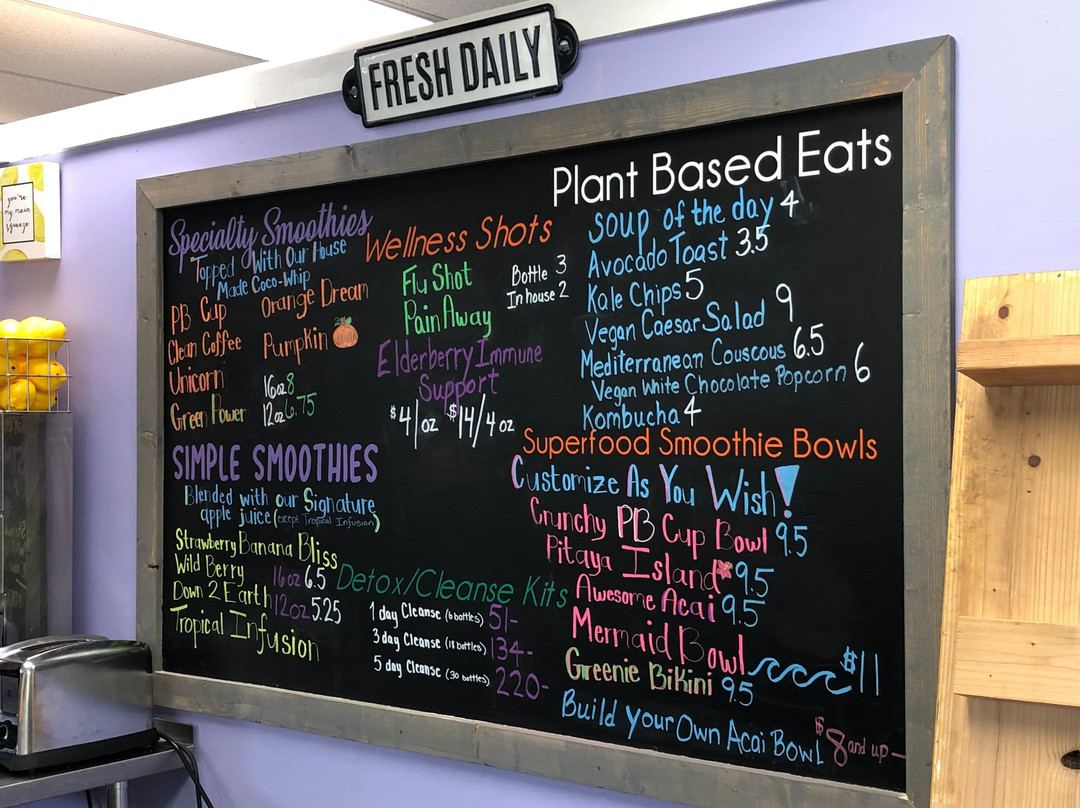 FRESH DAILY
you're
my main
squeeze
Specialty Smoothies
Topped With Our House
Made Coco-Whip
PB Cup Orange Dream
Clean Coffee Pumpkin
Unicorn 16oz 8
Green Power 12oz 6.75
SIMPLE SMOOTHIES
Blended with our Signature
apple juice (except Tropical Infusion)
Strawberry Banana Bliss
Wild Berry 16oz 6.5
Down 2 Earth 12oz 5.25
Tropical Infusion
Wellness Shots
Flu Shot Bottle 3
Pain Away In house 2
Elderberry Immune
Support
$4/oz $14/4 oz
Detox/Cleanse Kits
1 day Cleanse (6 bottles) 51-
3 day Cleanse (18 bottles) 134-
5 day Cleanse (30 bottles) 220-
Plant Based Eats
Soup of the day 4
Avocado Toast 3.5
Kale Chips 5
Vegan Caesar Salad 9
Mediterranean Couscous 6.5
Vegan White Chocolate Popcorn 6
Kombucha 4
Superfood Smoothie Bowls
Customize As You Wish!
Crunchy PB Cup Bowl 9.5
Pitaya Island 9.5
Awesome Acai 9.5
Mermaid Bowl $11
Greenie Bikini 9.5
Build your Own Acai Bowl $8 and up-